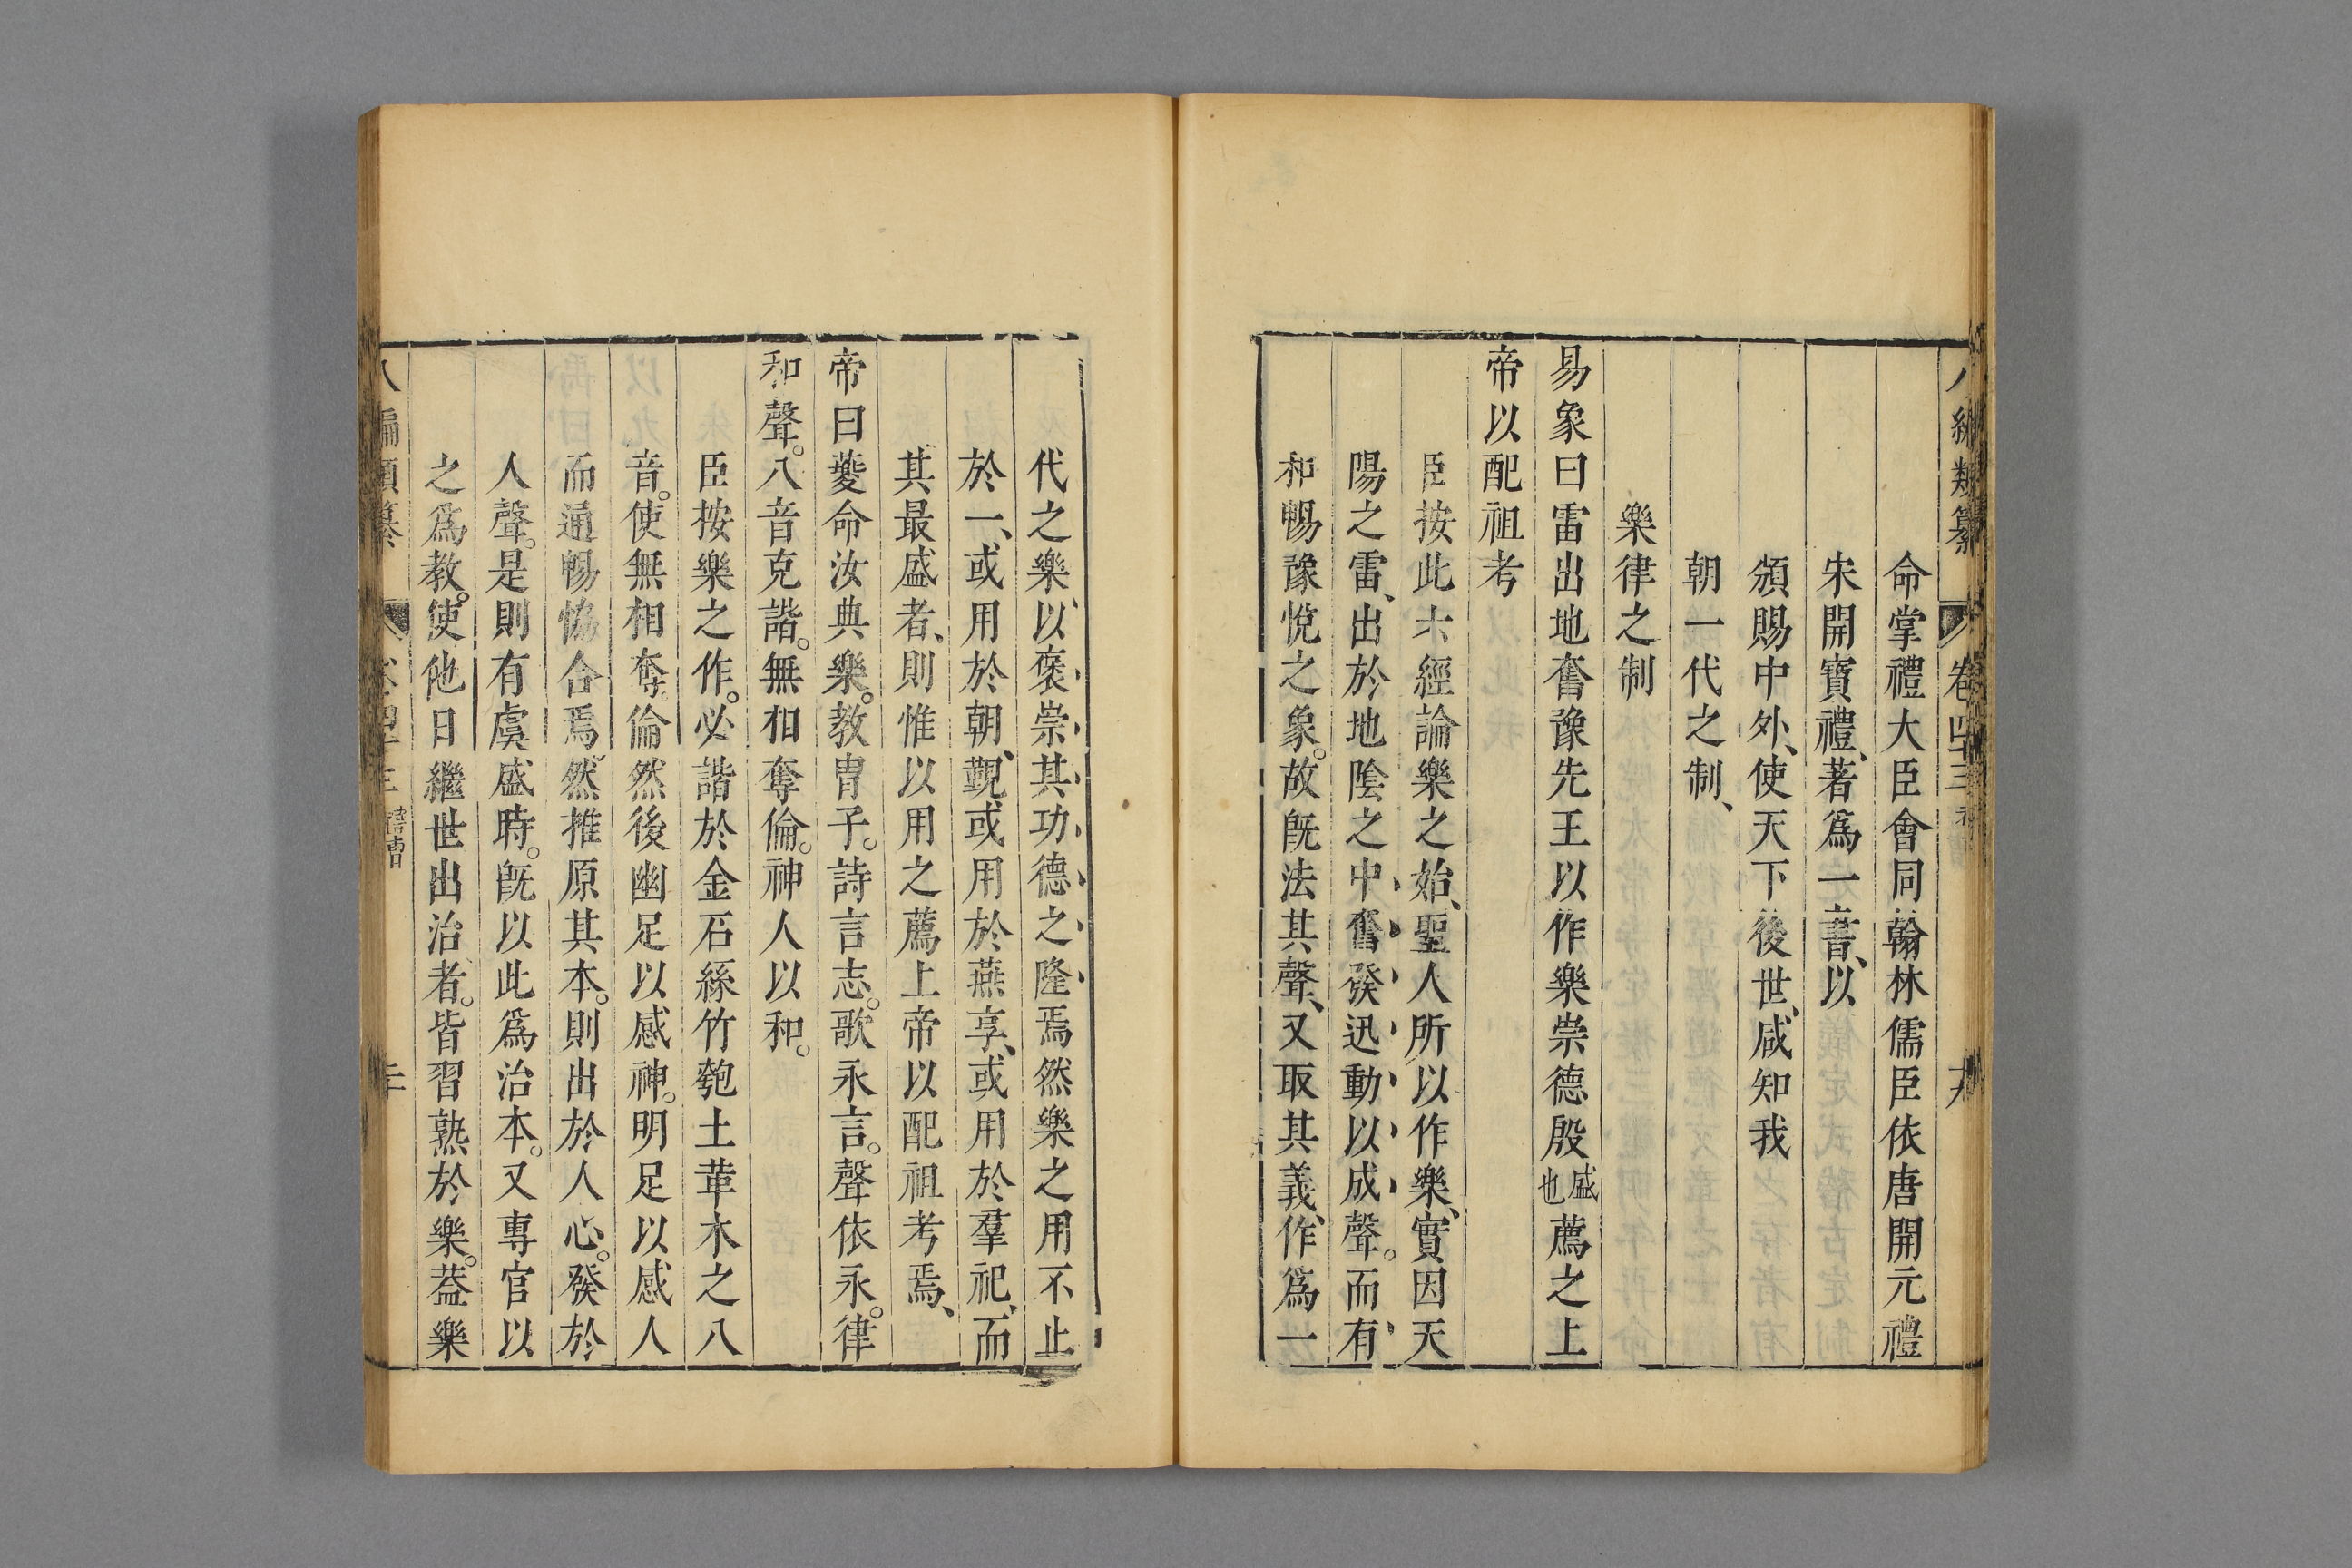 八編類纂 卷四十三 禮曹 十九
命掌禮大臣會同翰林儒臣依唐開元禮
宋開寶禮、著爲一書、以
頒賜中外、使天下後世、咸知我
朝一代之制、
樂律之制
易象曰雷出地奮豫先王以作樂崇德殷盛也薦之上
帝以配祖考
臣按此六經論樂之始、聖人所以作樂、實因天
陽之雷、出於地陰之中、奮發迅動以成聲。而有
和暢豫悅之象。故旣法其聲、又取其義、作爲一
代之樂、以褒崇其功德之隆焉然樂之用不止
於一、或用於朝、覲或用於燕享、或用於羣祀、而
其最盛者、則惟以用之薦上帝以配祖考焉、
帝曰夔命汝典樂。教胄子。詩言志。歌永言。聲依永。律
和聲。八音克諧。無相奪倫。神人以和。
臣按樂之作。必諧於金石絲竹匏土革木之八
音。使無相奪。倫然後幽足以感神。明足以感人
而通暢恊合焉。然推原其本。則出於人心。發於
人聲。是則有虞盛時。旣以此爲治本。又專官以
之爲教。使他日繼世出治者。皆習熟於樂。葢樂
八編類纂 卷四十三 禮曹 二十